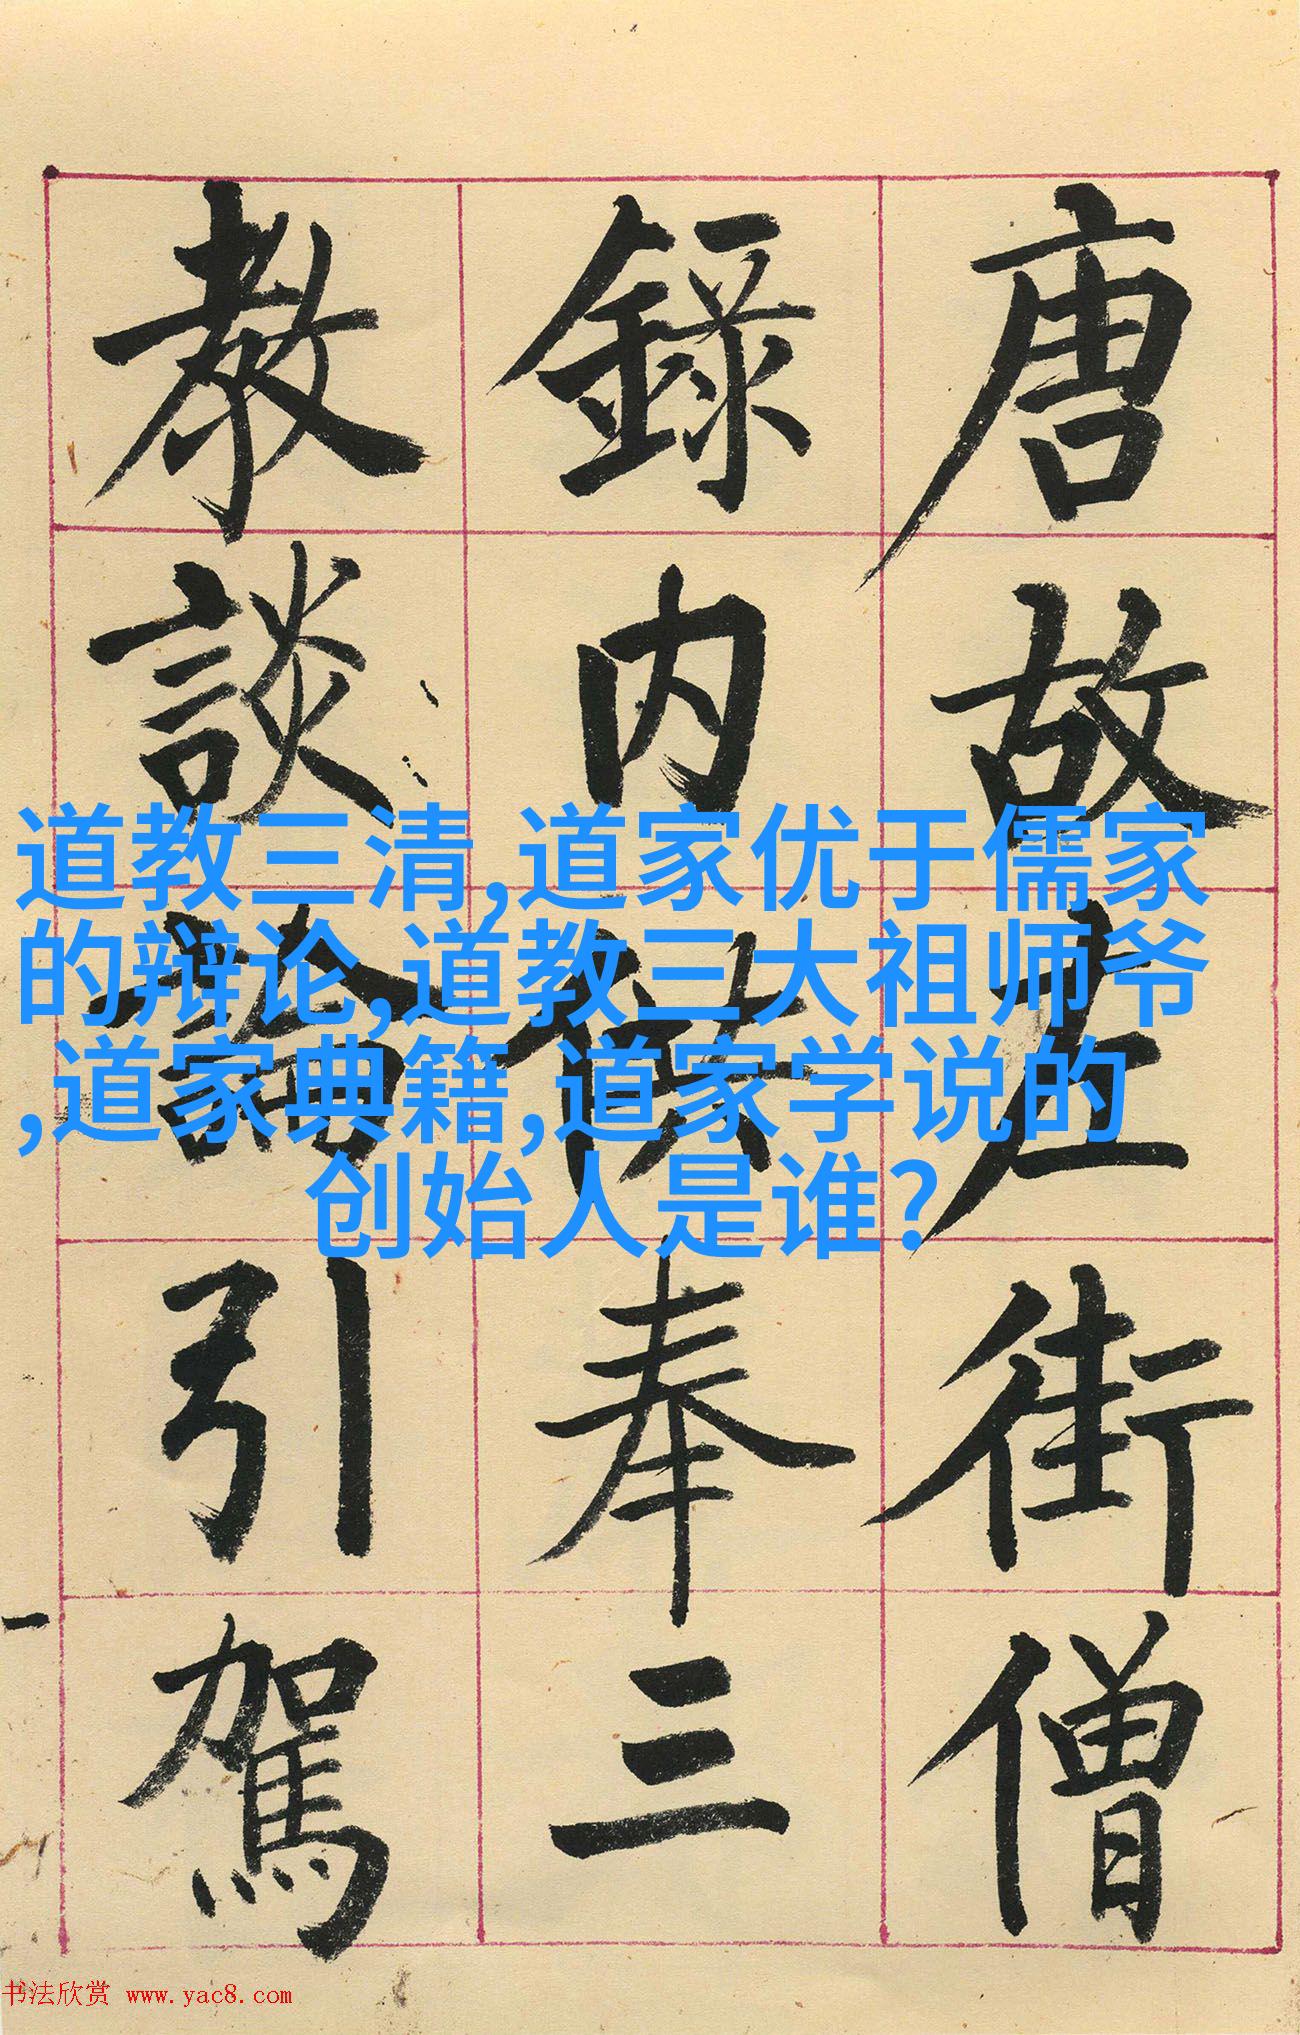 唐故左街僧
錄内供奉三
教談論引駕
道教三清,道家优于儒家
的辩论,道教三大祖师爷
,道家典籍,道家学说的
创始人是谁?
书法欣赏 www.yac8.com